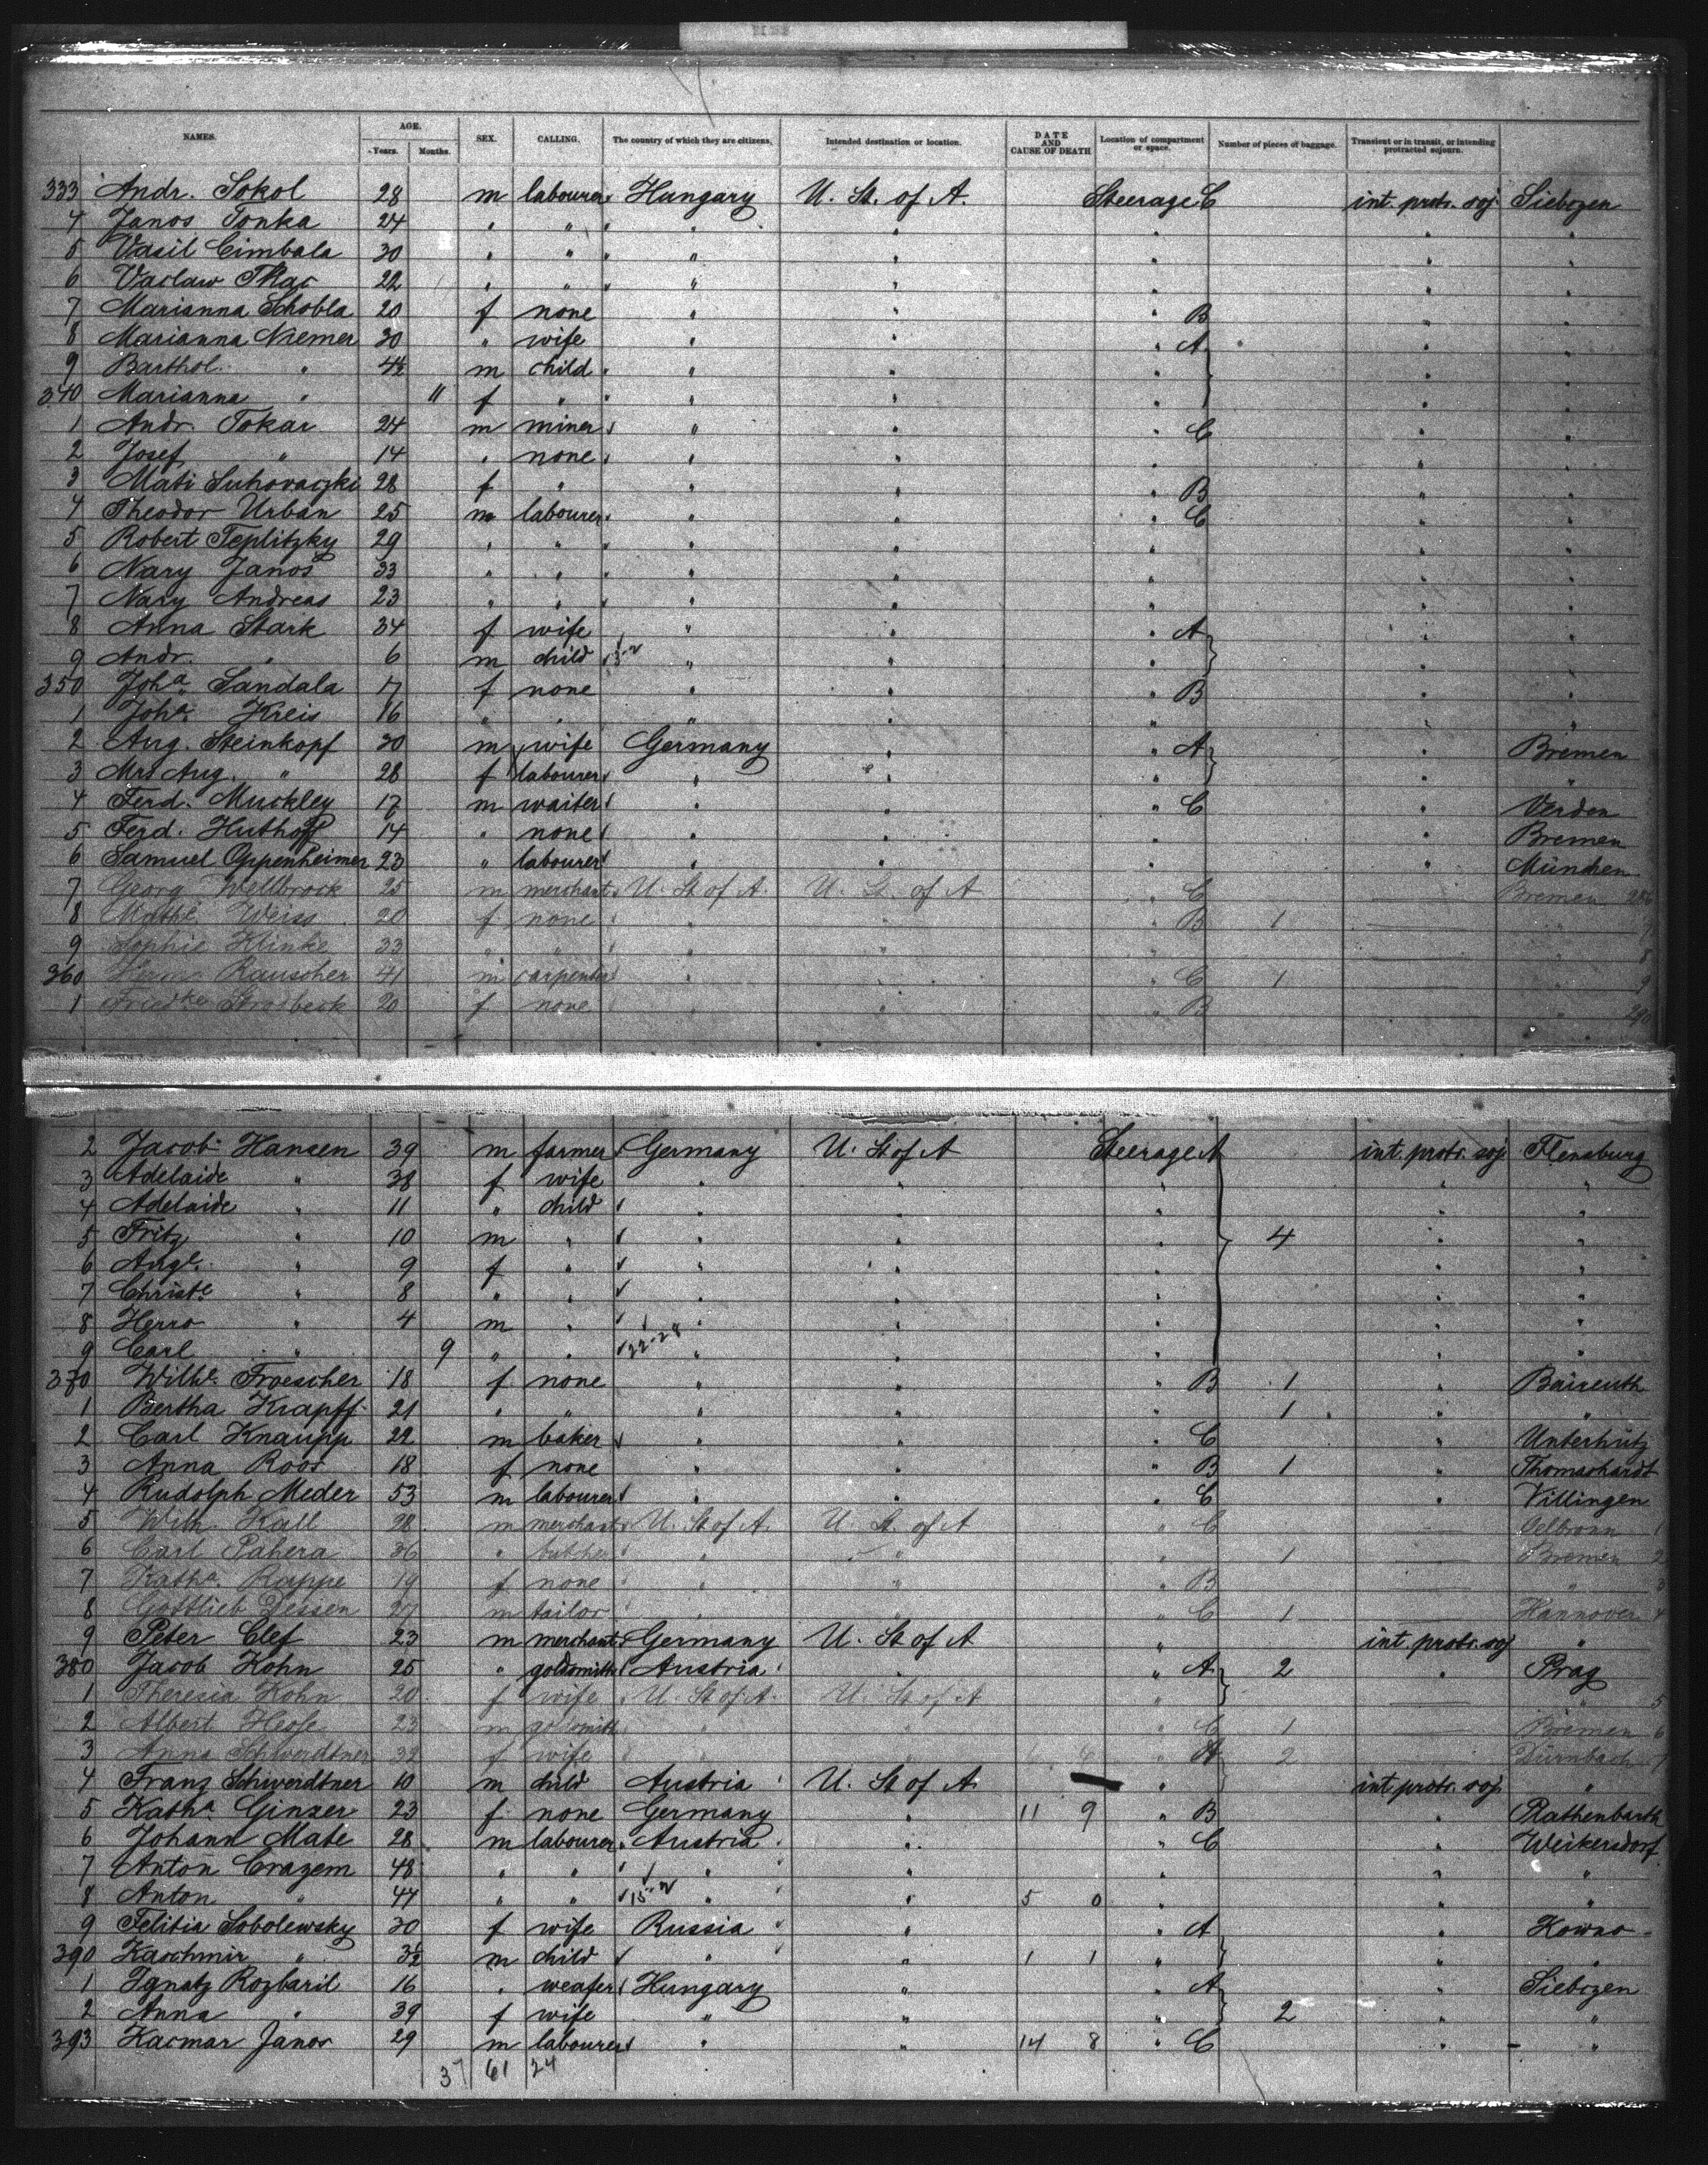 NAMES. AGE. SEX. CALLING. The country of which they are citizens. Intended destination or location. DATE AND CAUSE OF DEATH Location of compartment or space. Number of pieces of baggage. Transient or in transit, or intending protracted sojourn.
Years. Months.
333 Andr. Sokol 28 m labourer Hungary U. St. of A. Steerage C int. protr. soj. Siebozen
4 Janos Tonka 24 " " " " " " "
5 Vasil Cimbala 30 " " " " " " "
6 Vaclaw Tkac 22 " " " " " " "
7 Marianna Schobla 20 f none " " " B " "
8 Marianna Niemer 30 " wife " " " A " "
9 Barthol. " 4½ m child " " " " "
340 Marianna " 11 f " " " " " "
1 Andr. Tokar 24 m miner " " " C " "
2 Josef " 14 " none " " " " "
3 Mati Suhovaczki 28 f " " " " B " "
4 Theodor Urban 25 m labourer " " " C " "
5 Robert Teplitzky 29 " " " " " " "
6 Nary Janos 33 " " " " " " "
7 Nary Andreas 23 " " " " " " "
8 Anna Stark 34 f wife " " " A " "
9 Andr. " 6 m child " " " " "
350 Joha Sandala 17 f none " " " B " "
1 Joha Kreis 16 " " " " " " "
2 Aug. Steinkopf 30 m wife Germany " " A " Bremen
3 Mrs Aug. " 28 f labourer " " " " "
4 Ferd. Muckley 17 m waiter " " " C " Verden
5 Ferd. Huthoff 14 " none " " " " Bremen
6 Samuel Oppenheimer 23 " labourer " " " " München
7 Georg Wellbrock 25 m merchant U. St of A. U. St. of A " C — Bremen 286
8 Mathe Weiss 20 f none " " " B 1 — " 7
9 Sophie Klinke 33 " " " " " — " 8
360 Herm. Rauscher 41 m carpenter " " " C 1 — " 9
1 20 f none " " " B " 290
2 Jacob Hansen 39 m farmer Germany U. St of A Steerage A int. protr. soj Flensburg
3 Adelaide " 38 f wife " " " " "
4 Adelaide " 11 " child " " " " "
5 Fritz " 10 m " " " " 4 " "
6 Auge. " 9 f " " " " " "
7 Christe " 8 " " " " " " "
8 Herro " 4 m " " " " " "
9 Carl " 9 " " 22-28 " " " " "
370 Wilhe. Froescher 18 f none " " " B 1 " Baireuth
1 Bertha Krapff 21 " " " " " 1 " "
2 Carl Knaupp 22 m baker " " " C "
3 Anna Roos 18 f none " " " B 1 " Thomashardt
4 Rudolph Meder 53 m labourer " " " C " Villingen
5 Wilh. Kall 28 m merchant U. St of A. U. St. of A " C — Oelbronn 1
6 Carl Pahera 36 " butcher " " " 1 — Bremen 2
7 Katha. Rappe 19 f none " " " B — " 3
8 Gottlieb Dessen 27 m tailor " " " C 1 — Hannover 4
9 Peter Clef 23 m merchant Germany U. St of A " int. protr. soj "
380 Jacob Kohn 25 " goldsmith Austria " " A 2 " Prag
1 Theresia Kohn 20 f wife U. St of A. U. St of A " — " 5
2 Albert Hesse 23 m goldsmith " " " C 1 — Bremen 6
3 Anna Schwerdtner 32 f wife " " " A 2 — Dürnbach 7
4 Franz Schwerdtner 10 m child Austria U. St of A. " int. protr. soj. "
5 Katha Ginzer 23 f none Germany " 11 9 " B " Rathenbarth
6 Johann Mate 28 m labourer Austria " " C " Weikersdorf
7 Anton Crazem 48 " " " " " " "
8 Anton " 47 " " 15-2 " " 5 0 " " "
9 Felitia Sobolewsky 30 f wife Russia " " A " Kowno
390 Kaschmir " 3½ m child " " 1 1 " " "
1 Ignatz Rozbaril 16 " weafer Hungary " " A " Siebozen
2 Anna " 39 f wife " " " 2 " "
393 Kacmar Janos 29 m labourer " " 14 8 " C " "
37 61 24